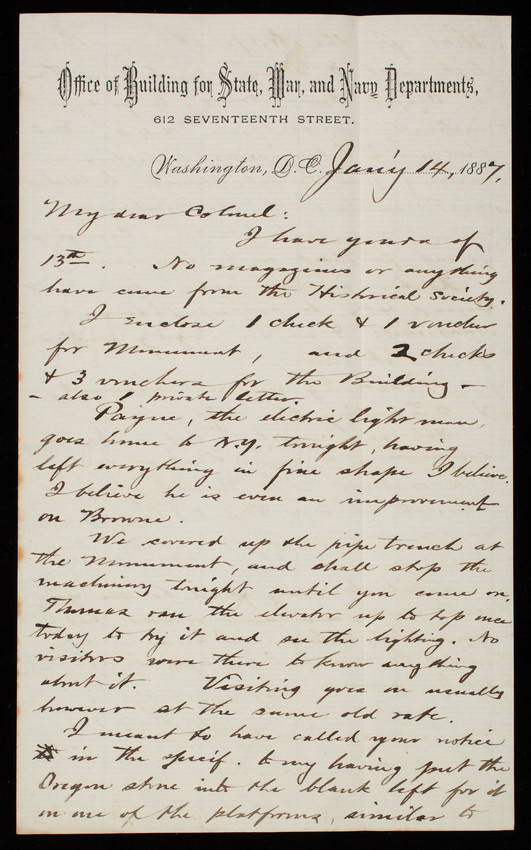 Office of Building for State, War, and Navy Departments,
612 SEVENTEENTH STREET.
Washington, D.C. Jan'y 14, 1887.
My dear Colonel:
I have yours of
13th. No magazines or anything
have come from the Historical Society.
I enclose 1 check & 1 voucher
for Monument, and 2 checks
& 3 vouchers for the Building –
– also 1 private letter.
Payne, the electric light man,
goes home to N.Y. tonight, having
left everything in fine shape I believe.
I believe he is even an improvement
on Browne.
We covered up the pipe trench at
the Monument, and shall stop the
machinery tonight until you come on.
Thomas ran the elevator up to top once
today to try it and see the lighting. No
visitors were there to know anything
about it. Visiting goes on usually
however at the same old rate.
I meant to have called your notice
in the specif. to my having put the
Oregon stone into the blank left for it
on one of the platforms, similar to